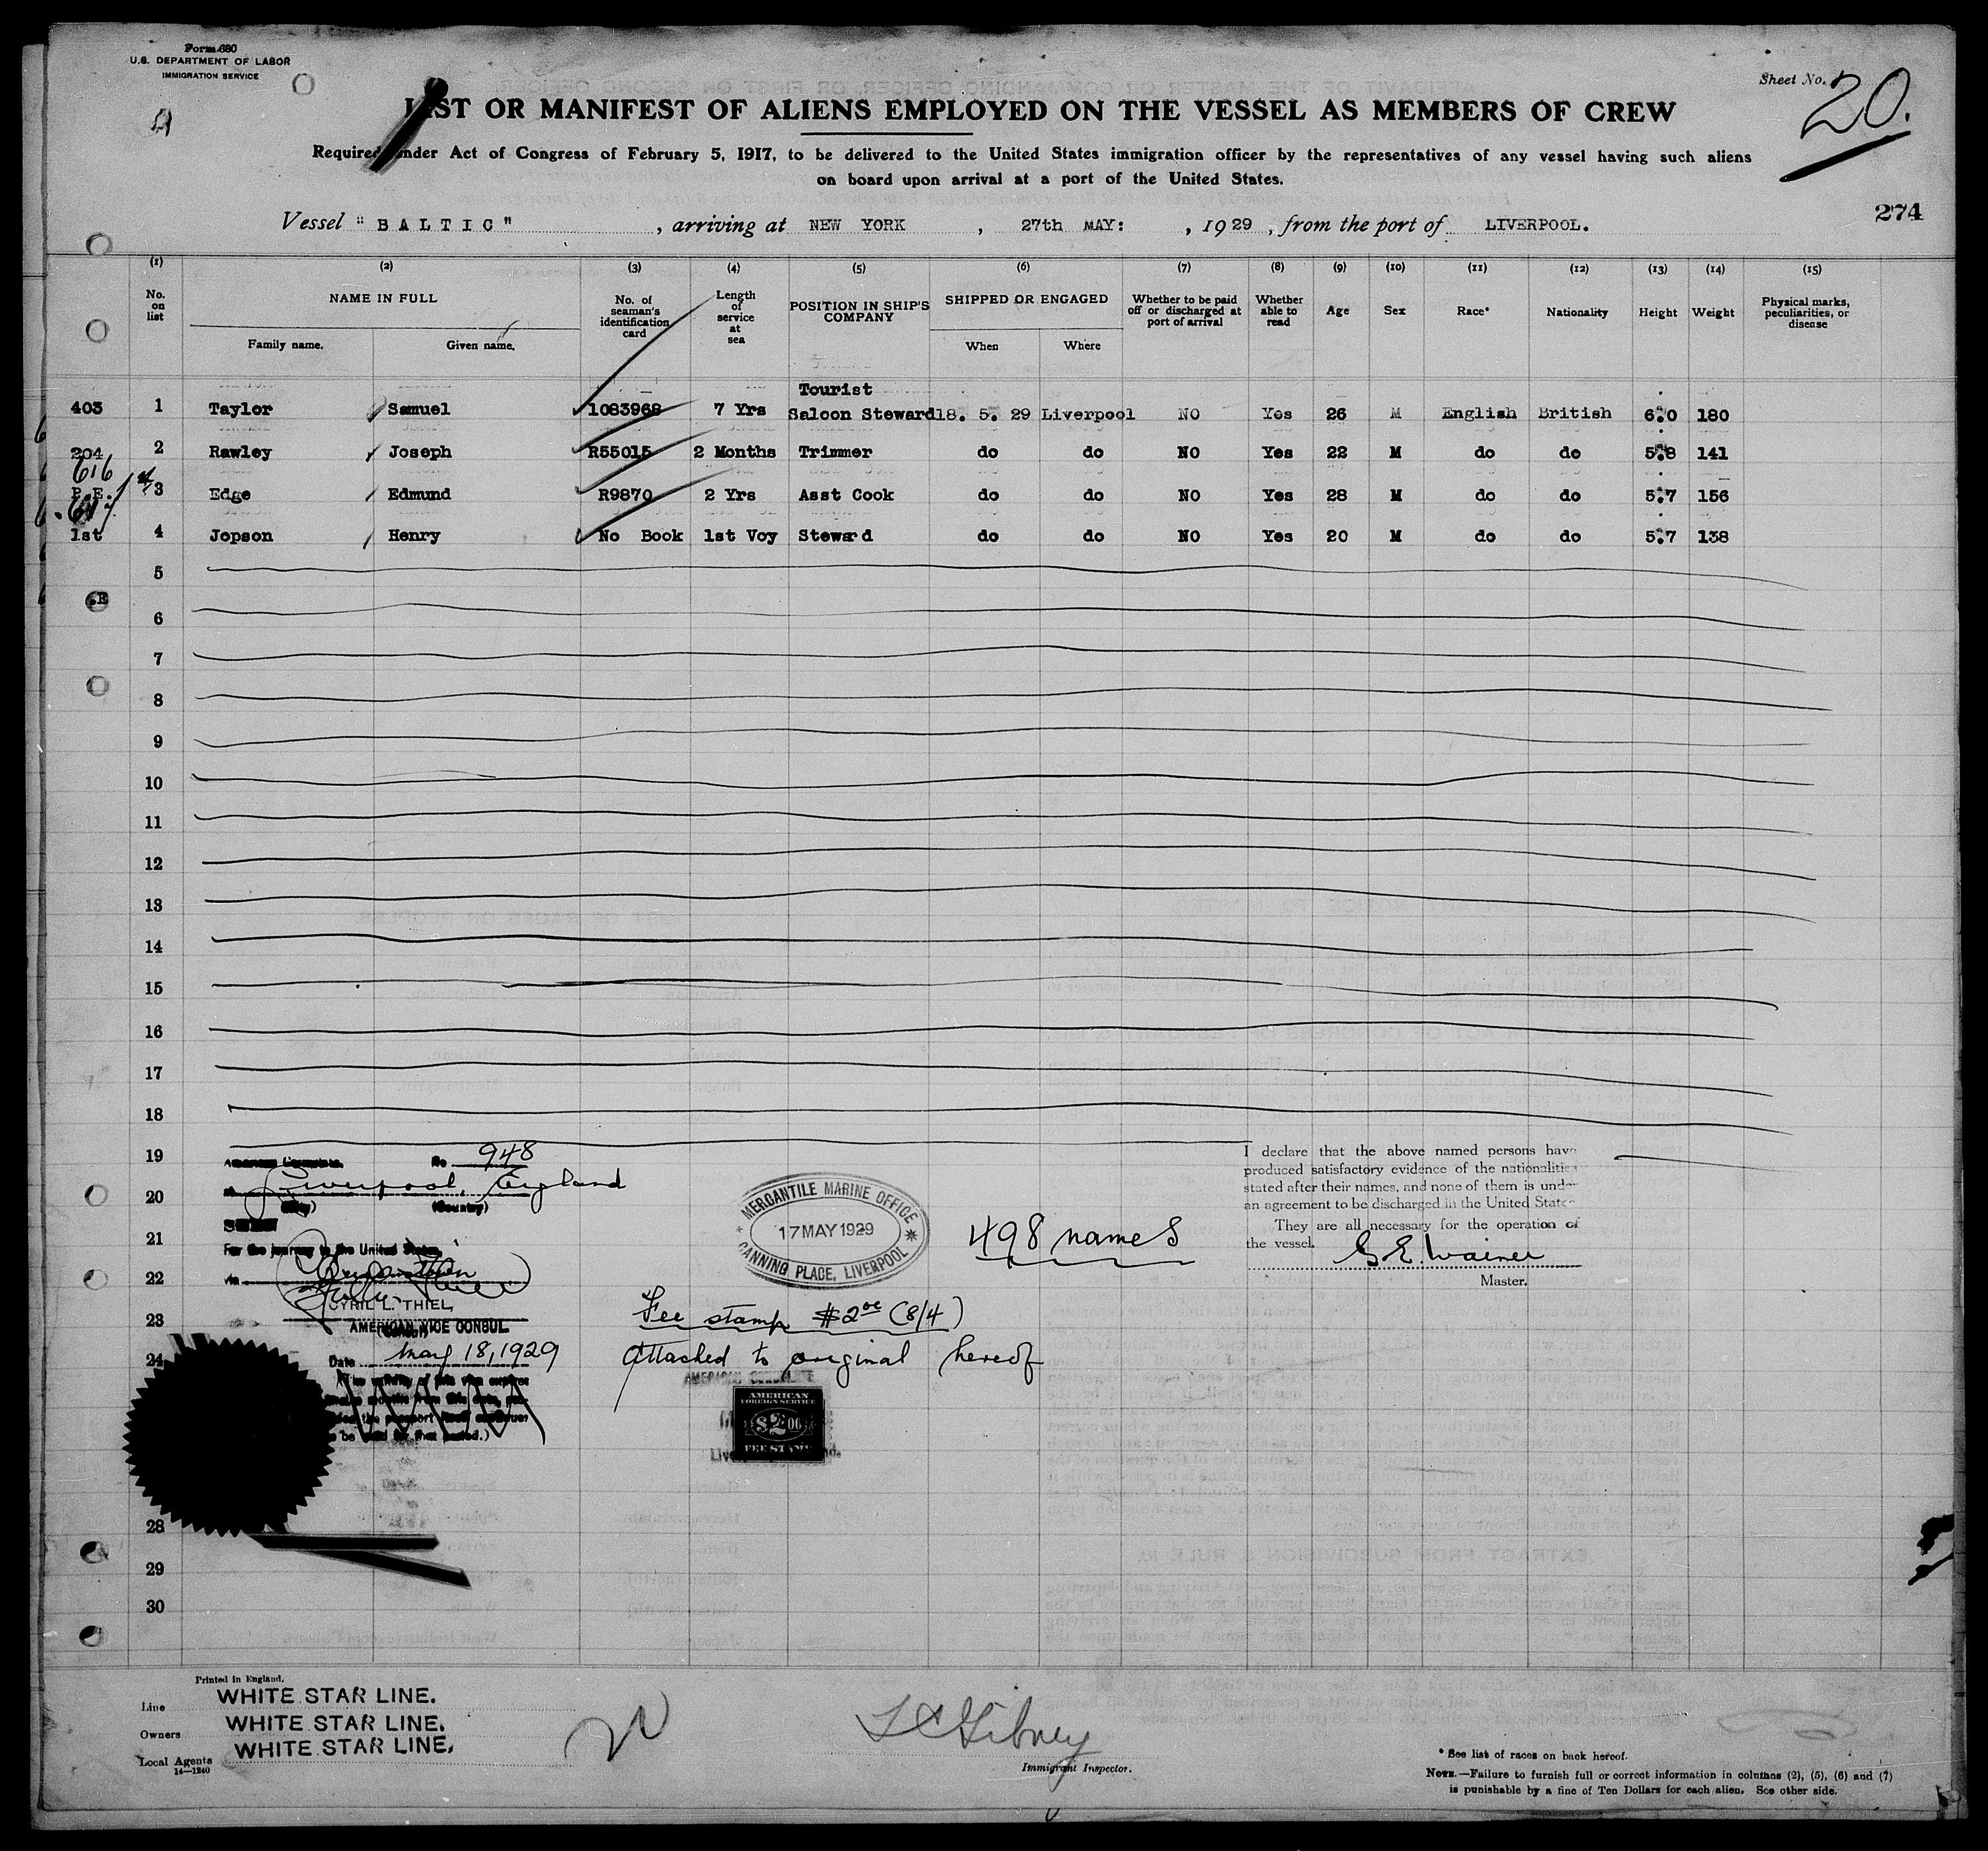 Form 680
U.S. DEPARTMENT OF LABOR
IMMIGRATION SERVICE
Sheet No. 20.
LIST OR MANIFEST OF ALIENS EMPLOYED ON THE VESSEL AS MEMBERS OF CREW
Required under Act of Congress of February 5, 1917, to be delivered to the United States immigration officer by the representatives of any vessel having such aliens
on board upon arrival at a port of the United States.
274
Vessel "BALTIC", arriving at NEW YORK, 27th MAY:, 1929, from the port of LIVERPOOL.
(1) (2) (3) (4) (5) (6) (7) (8) (9) (10) (11) (12) (13) (14) (15)
No. on list NAME IN FULL No. of seaman's identification card Length of service at sea POSITION IN SHIP'S COMPANY SHIPPED OR ENGAGED Whether to be paid off or discharged at port of arrival Whether able to read Age Sex Race* Nationality Height Weight Physical marks, peculiarities, or disease
Family name. Given name. When Where
Tourist
403 1 Taylor Samuel 1083968 7 Yrs Saloon Steward 18. 5. 29 Liverpool NO Yes 26 M English British 6.0 180
204 2 Rawley Joseph R55015 2 Months Trimmer do do NO Yes 22 M do do 5.8 141
616
P.E. 3 Edge Edmund R9870 2 Yrs Asst Cook do do NO Yes 28 M do do 5.7 156
1st 4 Jopson Henry No Book 1st Voy Steward do do NO Yes 20 M do do 5.7 138
5
6
7
8
9
10
11
12
13
14
15
16
17
18
19
20
21
22
23
24
28
29
30
No 948
Liverpool, England
(City) (Country)
For the journey to the United States,
via
CYRIL L. THIEL,
AMERICAN VICE CONSUL
Date May 18, 1929
MERCANTILE MARINE OFFICE
17 MAY 1929
CANNING PLACE, LIVERPOOL
498 names
Fee stamp $2.00 (8/4)
attached to original hereof
AMERICAN
FOREIGN SERVICE
$2.00
FEE STAMP
I declare that the above named persons have
produced satisfactory evidence of the nationalities
stated after their names, and none of them is under
an agreement to be discharged in the United States
They are all necessary for the operation of
the vessel.
Master.
Printed in England.
Line WHITE STAR LINE.
Owners WHITE STAR LINE.
Local Agents WHITE STAR LINE.
14—1240
Immigrant Inspector.
* See list of races on back hereof.
NOTE.—Failure to furnish full or correct information in columns (2), (5), (6) and (7)
is punishable by a fine of Ten Dollars for each alien. See other side.